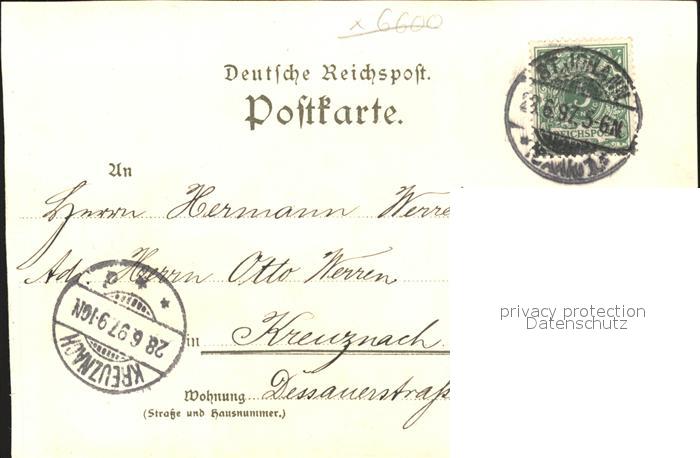 x 6600
Deutsche Reichspost.
Postkarte.
An
Herrn Hermann Werre
Adr. Herrn Otto Werren
in Kreuznach
Wohnung Dessauerstraß
(Straße und Hausnummer.)
ST. JOHANN
28.6.97. 5-6N
REICHSPOST
KREUZNACH
28.6.97. 9-10N
privacy protection
Datenschutz